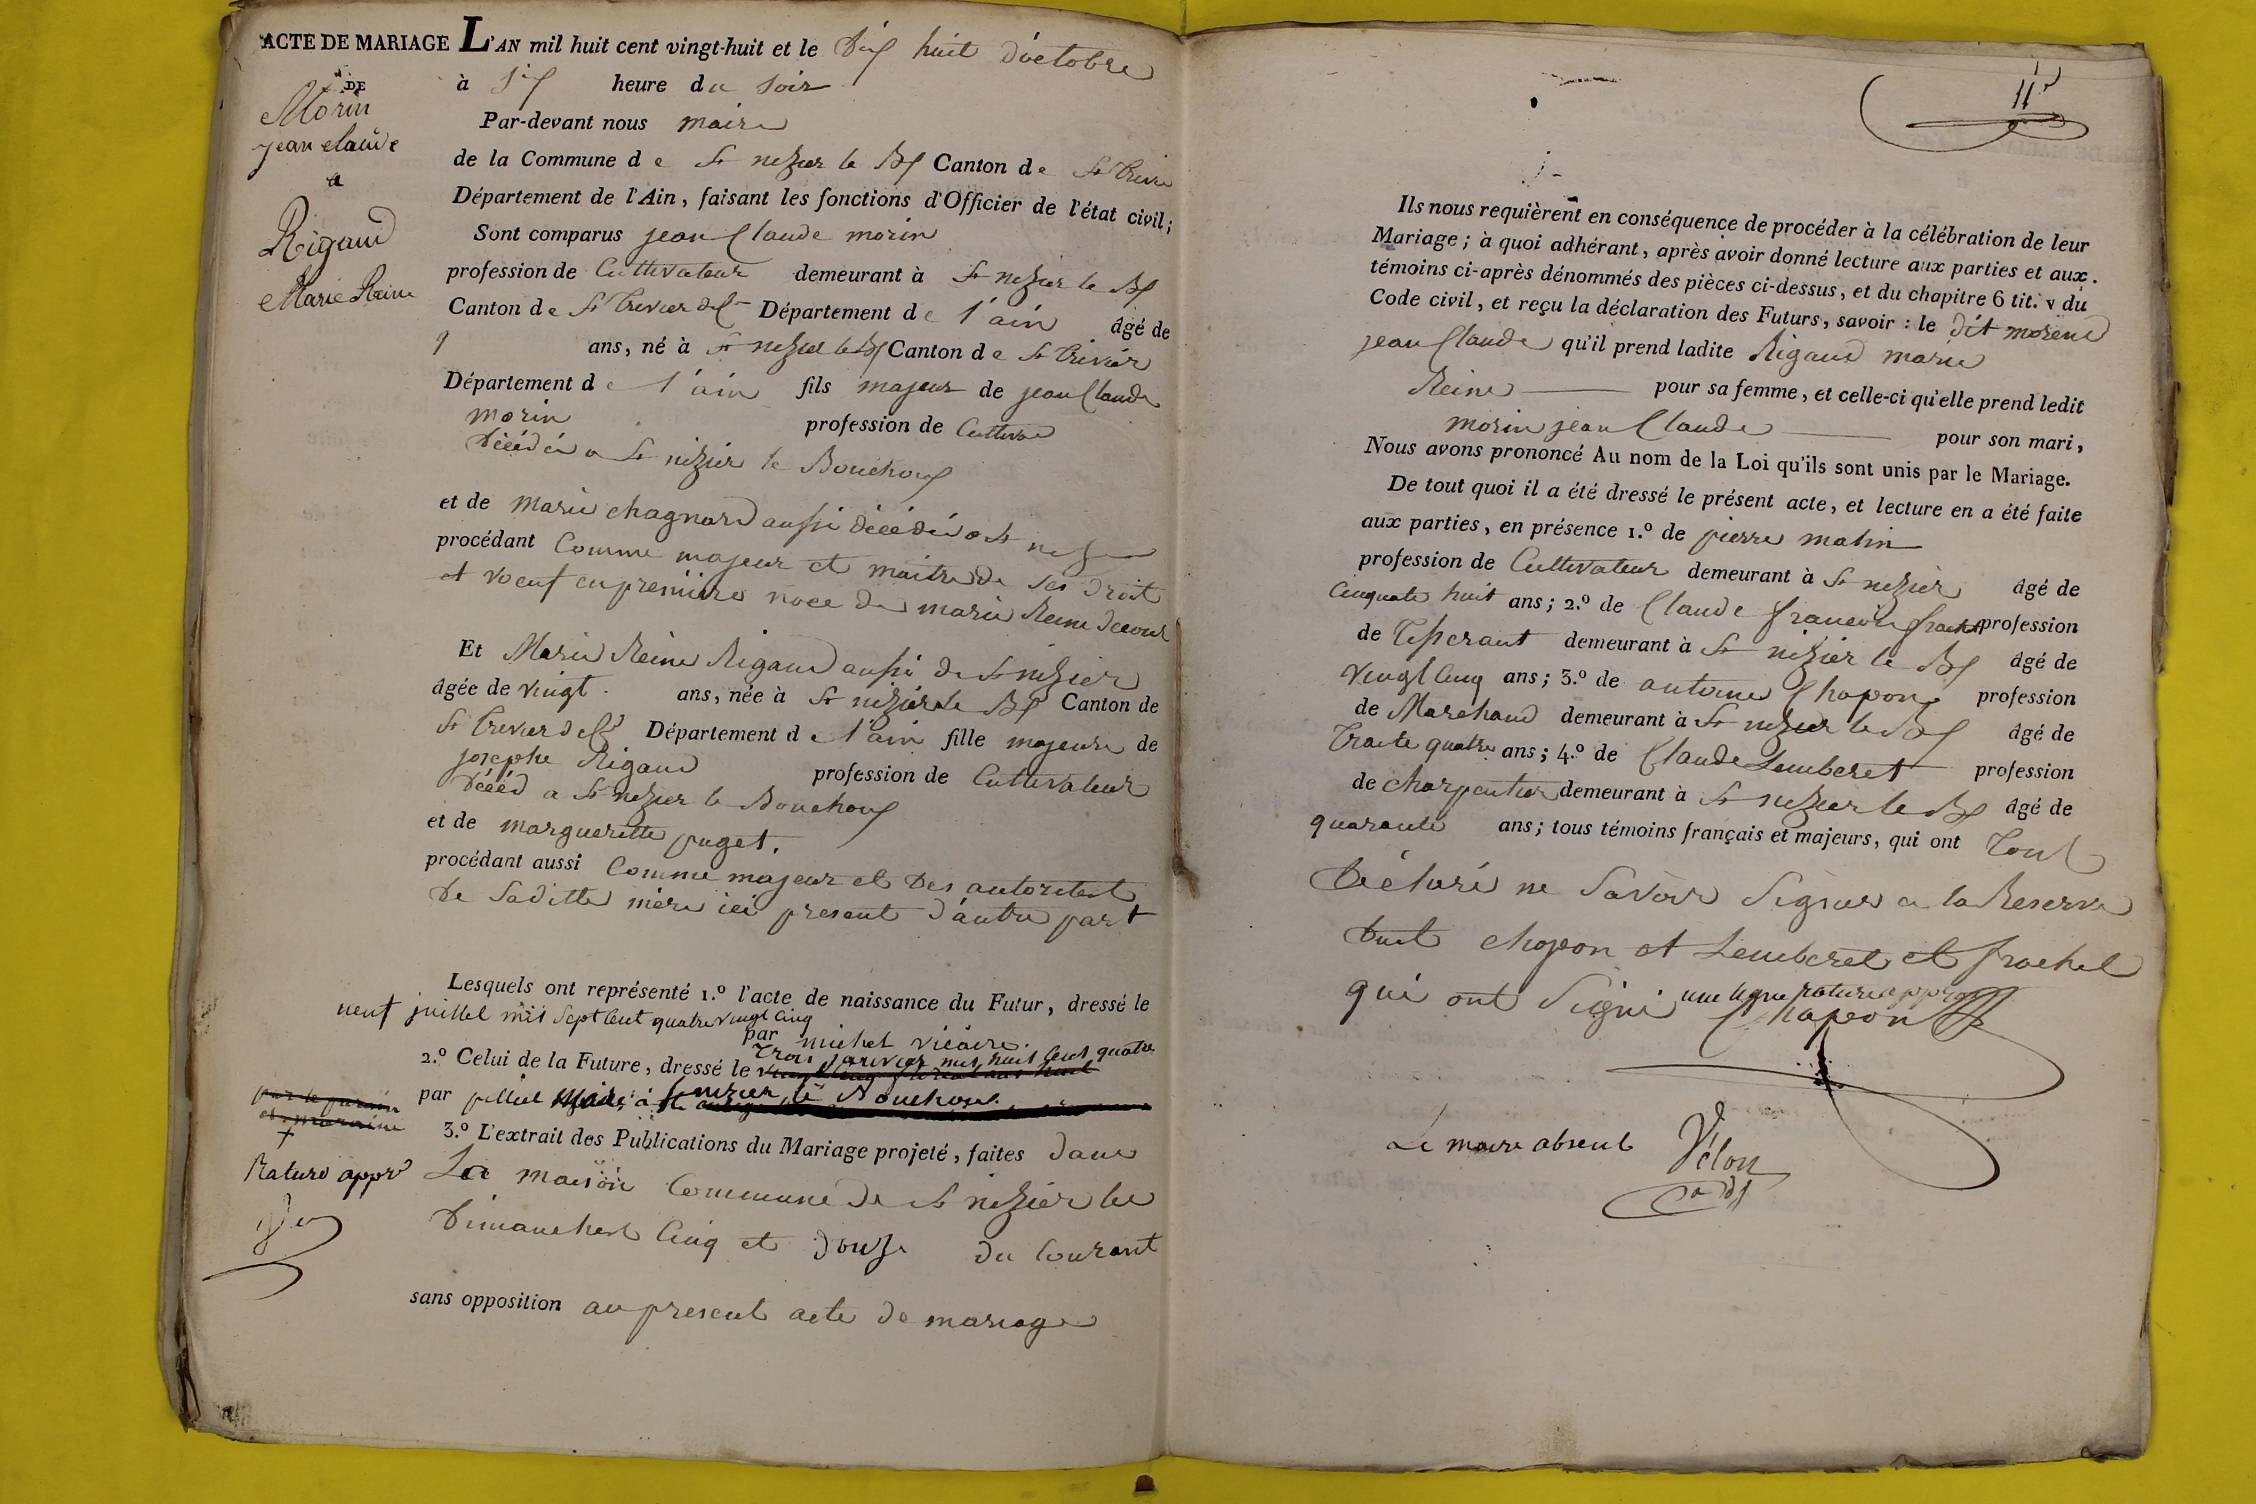 ACTE DE MARIAGE
DE
Morin
jean claude
a
Rigaud
Marie Reine
L'AN mil huit cent vingt-huit et le dix huit d'octobre
à six heure du soir
Par-devant nous maire
de la Commune de St nizier le Bx Canton de St trivier
Département de l'Ain, faisant les fonctions d'Officier de l'état civil;
Sont comparus jean Claude morin
profession de Cultivateur demeurant à St nizier le Bx
Canton de St trivier Département de l'ain âgé de
ans, né à St nizier le Bx Canton de St trivier
Département de l'ain fils majeur de jean Claude
morin profession de
décédé a St nizier le Bouchoux
et de marie chagnard aussi décédé a St nizier
procédant Comme majeur et maitre de ses droit
et voeuf en premiere noce de marie Reine
Et Marie Reine Rigaud aussi de St nizier
âgée de vingt ans, née à St nizier le Bx Canton de
St trivier Département de l'ain fille majeure de
josephe Rigaud profession de Cultivateur
décéd a St nizier le Bouchoux
et de margueritte puget.
procédant aussi Comme majeur et des autoritest
de saditte mère ici present d'autre part
Lesquels ont représenté 1.º l'acte de naissance du Futur, dressé le
neuf juillet mil sept cent quatre vingt cinq
par michel vicaire.
2.º Celui de la Future, dressé le trois janvier mil huit cent quatre
par maire à St nizier le Bouchoux
par le parain
et maraine
3.º L'extrait des Publications du Mariage projeté, faites dans
Rature appr
La maison Commune de St nizier les
dimanchest cinq et douze du courant
sans opposition au present acte de mariage
11
Ils nous requièrent en conséquence de procéder à la célébration de leur
Mariage; à quoi adhérant, après avoir donné lecture aux parties et aux
témoins ci-après dénommés des pièces ci-dessus, et du chapitre 6 tit. v du
Code civil, et reçu la déclaration des Futurs, savoir: le dit morin
jean Claude qu'il prend ladite Rigaud marie
Reine pour sa femme, et celle-ci qu'elle prend ledit
morin jean Claude pour son mari,
Nous avons prononcé Au nom de la Loi qu'ils sont unis par le Mariage.
De tout quoi il a été dressé le présent acte, et lecture en a été faite
aux parties, en présence 1.º de pierre matin
profession de Cultivateur demeurant à St nizier âgé de
Cinquate huit ans; 2.º de Claude francois frachet profession
de Tisserant demeurant à St nizier le Bx âgé de
vingt Cinq ans; 3.º de antoine Chapon profession
de Marchand demeurant à St nizier le Bx âgé de
Trante quatre ans; 4.º de Claude Lemberet profession
de charpentier demeurant à St nizier le Bx âgé de
quarante ans; tous témoins français et majeurs, qui ont Tout
déclaré ne Savoir Signer a la Reserve
dudt chapon et Lemberet et frachet
qui ont Signé une ligne raturée appr
Chapon
Le maire absent Vélon
adjt